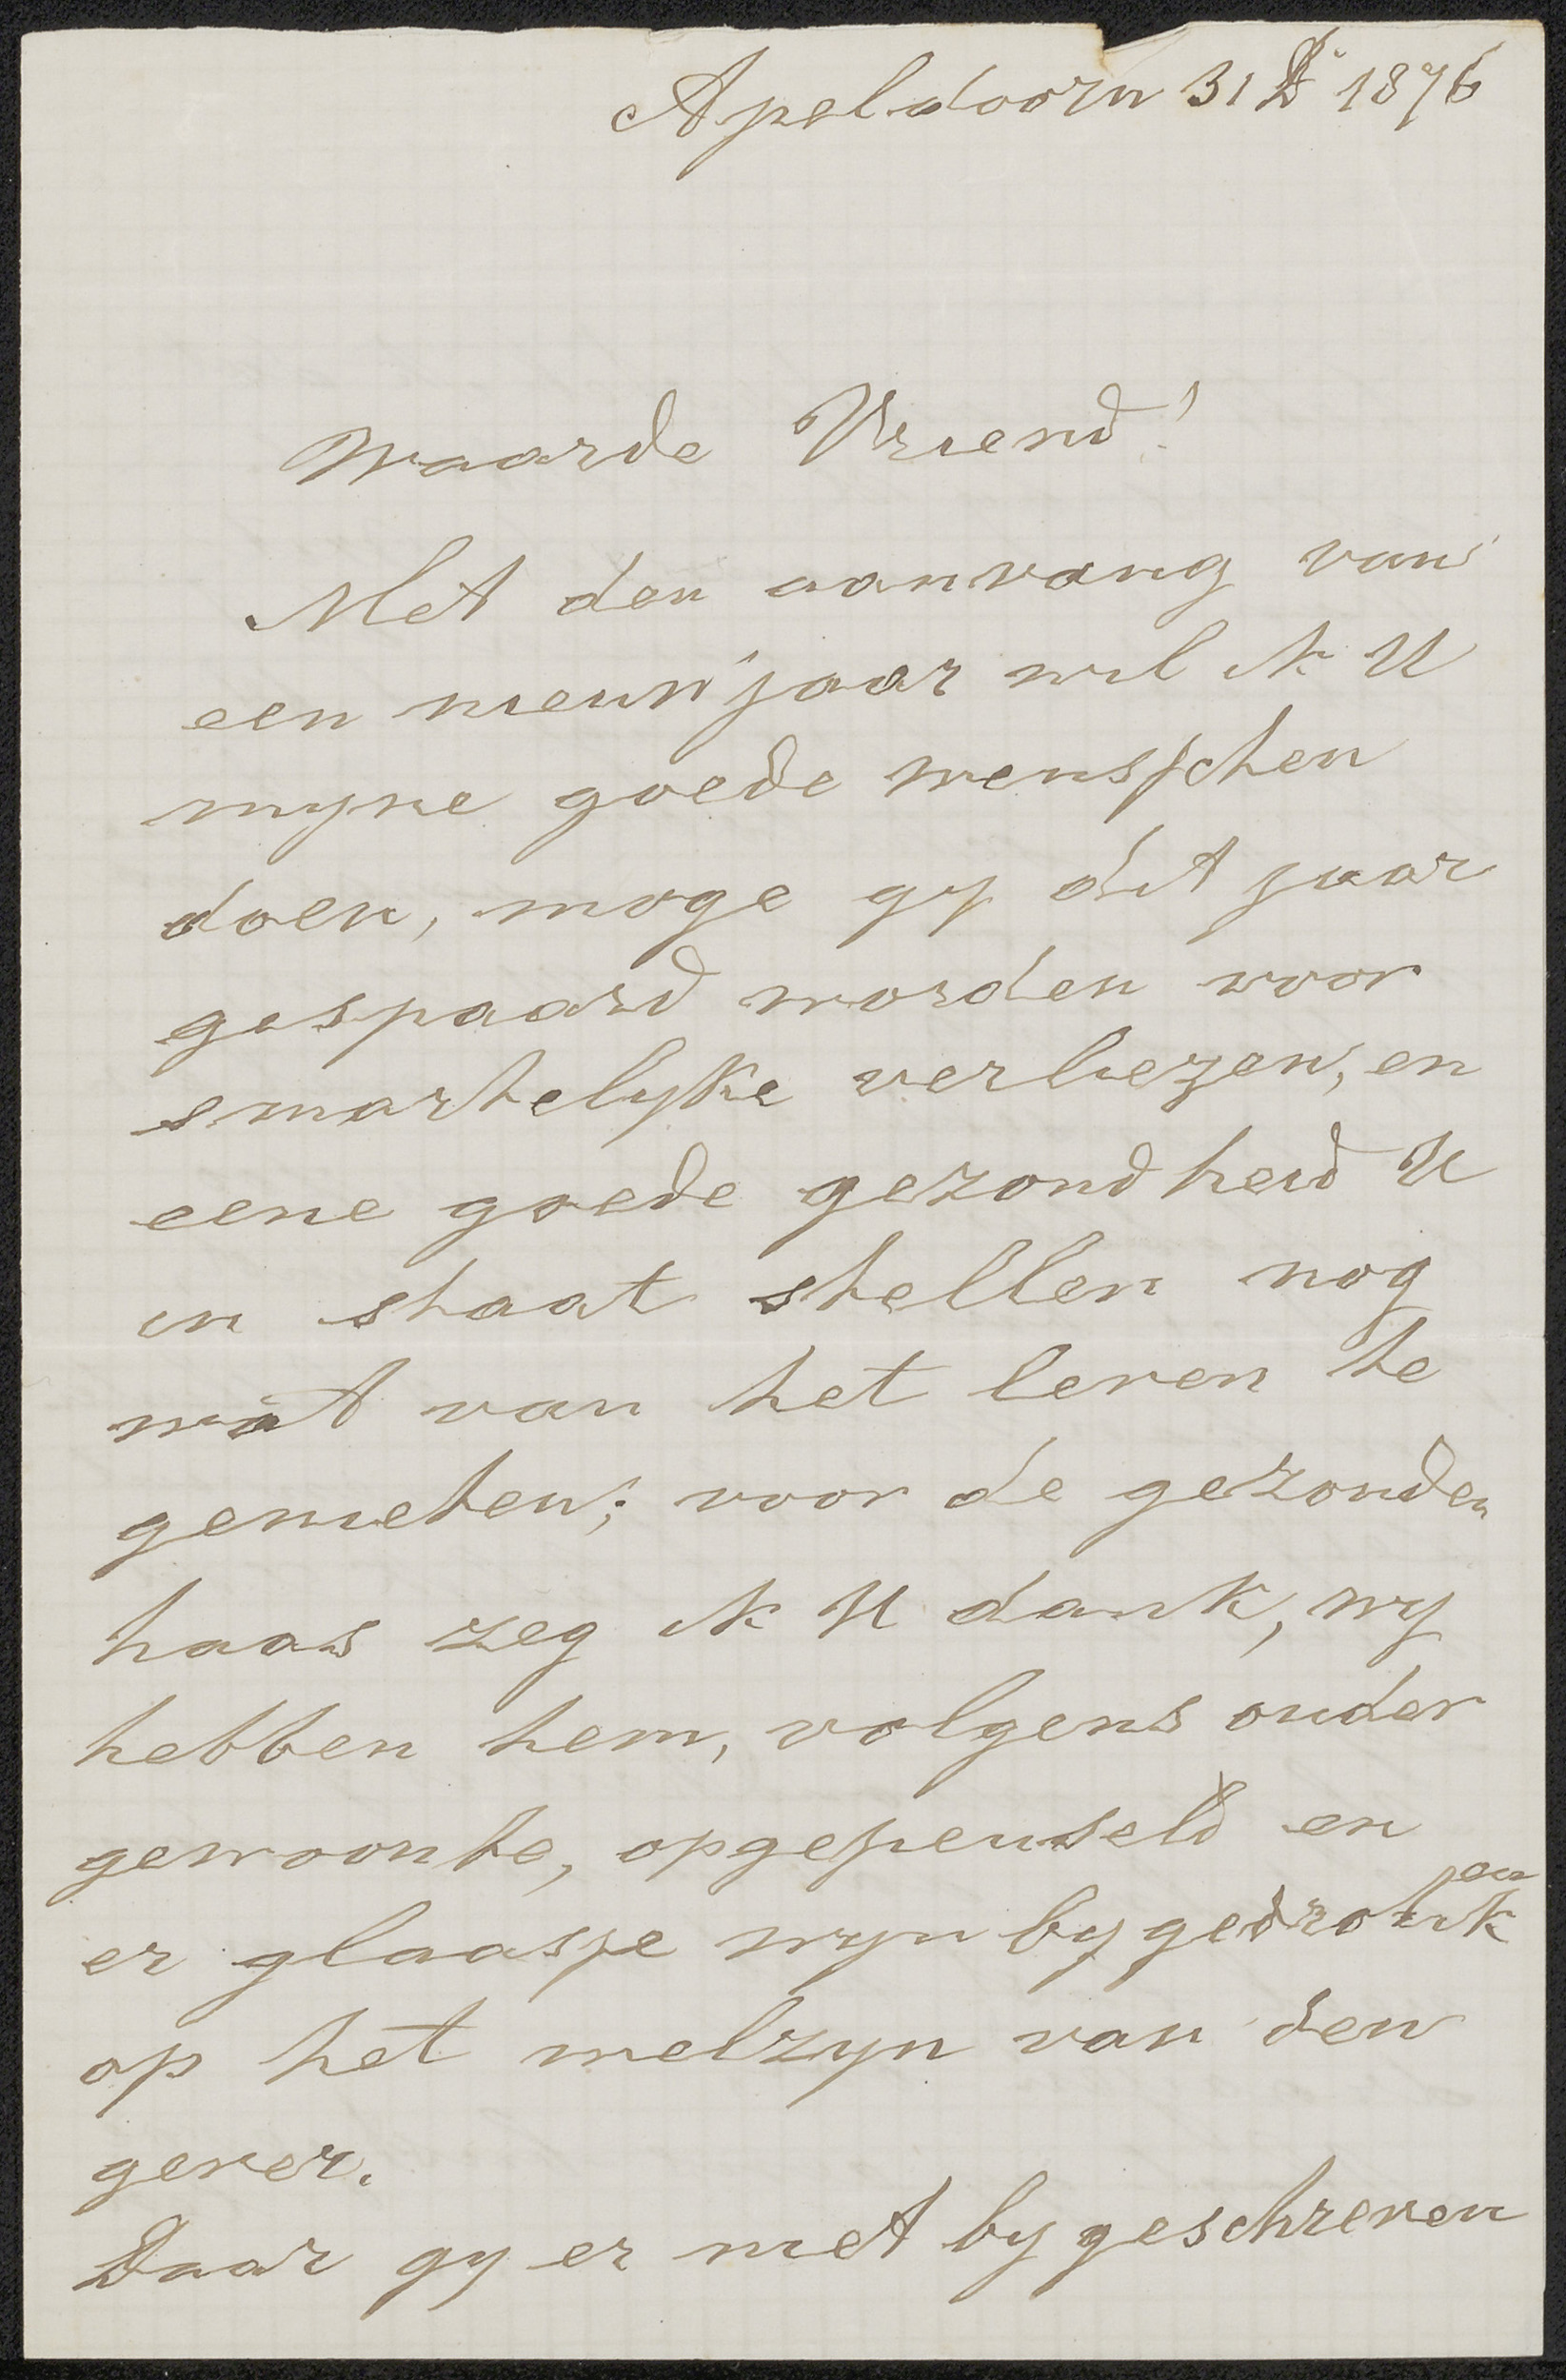 Apeldoorn 31 D 1876
Waarde Vriend!
Met den aanvang van
een nieuw jaar wil ik U
myne goede wenschen
doen, moge gy dit jaar
gespaard worden voor
smartelyke verliezen, en
eene goede gezondheid U
in staat stellen nog
wat van het leven te
genieten; voor de gezonden
haas zeg ik U dank, wy
hebben hem, volgens ouder
gewoonte, opgepeuseld en
er glaasje wyn by gedronken
op het welzyn van den
gever.
Daar gy er niet by geschreven